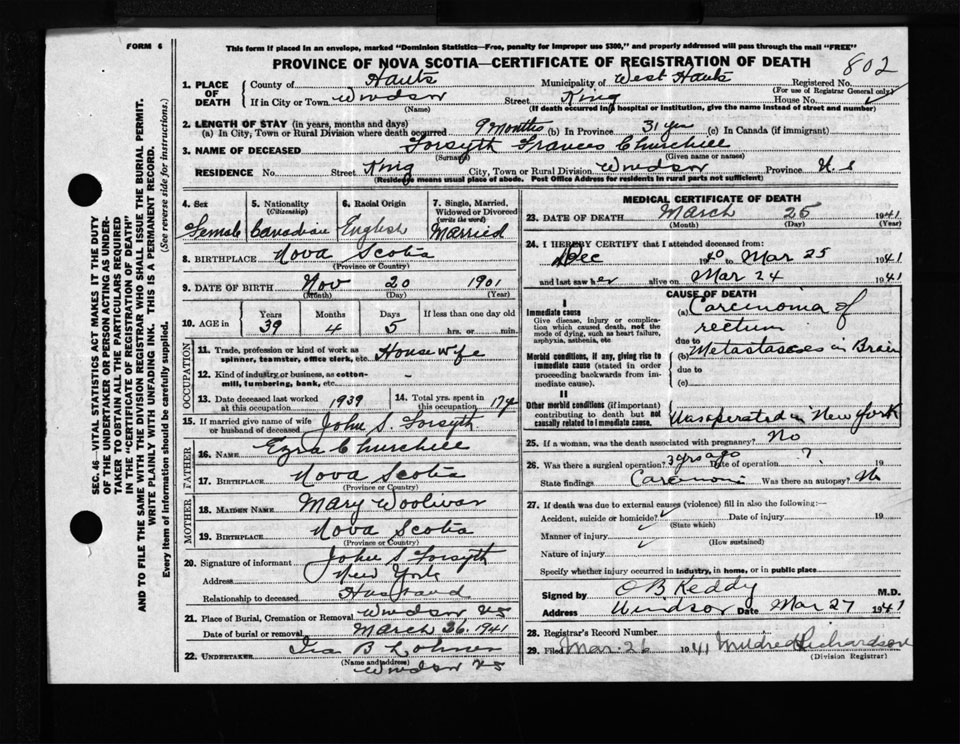 FORM 6
This form if placed in an envelope, marked "Dominion Statistics—Free, penalty for improper use $300," and properly addressed will pass through the mail "FREE"
PROVINCE OF NOVA SCOTIA—CERTIFICATE OF REGISTRATION OF DEATH
802
1. PLACE OF DEATH
County of Hants Municipality of West Hants Registered No.
(For use of Registrar General only)
If in City or Town Windsor Street King House No. ✓
(Name) (If death occurred in a hospital or institution, give the name instead of street and number)
2. LENGTH OF STAY (in years, months and days)
(a) In City, Town or Rural Division where death occurred 9 months (b) In Province 31 yrs (c) In Canada (if immigrant)
3. NAME OF DECEASED Forsyth Frances Churchill
(Surname) (Given name or names)
RESIDENCE No. Street King City, Town or Rural Division Windsor Province N.S
(Residence means usual place of abode. Post Office Address for residents in rural parts not sufficient)
4. Sex Female
5. Nationality (Citizenship) Canadian
6. Racial Origin English
7. Single, Married, Widowed or Divorced (write the word) Married
8. BIRTHPLACE Nova Scotia
(Province or Country)
9. DATE OF BIRTH Nov 20 1901
(Month) (Day) (Year)
10. AGE in Years Months Days If less than one day old
39 4 5 hrs. or min.
OCCUPATION
11. Trade, profession or kind of work as spinner, teamster, office clerk, etc. Housewife
12. Kind of industry or business, as cotton-mill, lumbering, bank, etc. –
13. Date deceased last worked at this occupation 1939
14. Total yrs. spent in this occupation 17 y
15. If married give name of wife or husband of deceased John S. Forsyth
FATHER
16. NAME Ezra Churchill
17. BIRTHPLACE Nova Scotia
(Province or Country)
MOTHER
18. MAIDEN NAME Mary Wooliver
19. BIRTHPLACE Nova Scotia
(Province or Country)
20. Signature of informant John S Forsyth
Address New York
Relationship to deceased Husband
21. Place of Burial, Cremation or Removal Windsor NS
Date of burial or removal March 26. 1941
22. UNDERTAKER Ira B Lohnes
(Name and address) Windsor NS
MEDICAL CERTIFICATE OF DEATH
23. DATE OF DEATH March 25 1941
(Month) (Day) (Year)
24. I HEREBY CERTIFY that I attended deceased from:
Dec 1940 to Mar 25 1941
and last saw her alive on Mar 24 1941
CAUSE OF DEATH
I
Immediate cause
Give disease, injury or complication which caused death, not the mode of dying, such as heart failure, asphyxia, asthenia, etc.
(a) Carcinoma of rectum
due to
Morbid conditions, if any, giving rise to immediate cause (stated in order proceeding backwards from immediate cause).
(b) Metastases in Brain
due to
(c)
II
Other morbid conditions (if important) contributing to death but not causally related to immediate cause.
Was operated in New York
25. If a woman, was the death associated with pregnancy? No
26. Was there a surgical operation? 3 yrs ago Date of operation ? 19
State findings Carcinoma Was there an autopsy? No
27. If death was due to external causes (violence) fill in also the following:
Accident, suicide or homicide? ✓ Date of injury 19
(State which)
Manner of injury ✓
(How sustained)
Nature of injury ✓
Specify whether injury occurred in industry, in home, or in public place
Signed by O B Keddy M.D.
Address Windsor Date Mar 27 1941
28. Registrar's Record Number
29. Filed Mar. 26 1941 Mildred Richardson
(Division Registrar)
SEC. 46—VITAL STATISTICS ACT MAKES IT THE DUTY
OF THE UNDERTAKER OR PERSON ACTING AS UNDER-
TAKER TO OBTAIN ALL THE PARTICULARS REQUIRED
IN THE "CERTIFICATE OF REGISTRATION OF DEATH"
AND TO FILE THE SAME WITH THE DIVISION REGISTRAR WHO SHALL ISSUE THE BURIAL PERMIT.
WRITE PLAINLY WITH UNFADING INK. THIS IS A PERMANENT RECORD.
Every item of information should be carefully supplied. (See reverse side for instructions.)